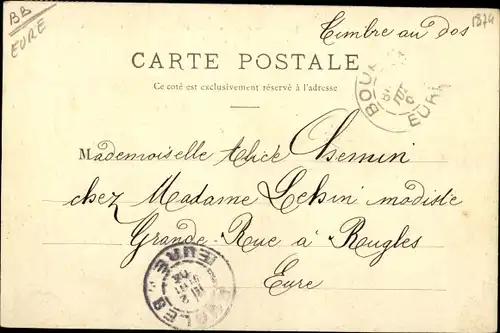 BB
EURE
Timbre au dos
1874
CARTE POSTALE
Ce côté est exclusivement réservé à l'adresse
BOU
EURE
Mademoiselle Alice Chemin
chez Madame Lehin modiste
Grande-Rue à Rugles
Eure
EURE
RUGLES